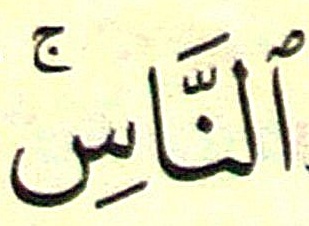 ٱلنَّاسِۚ